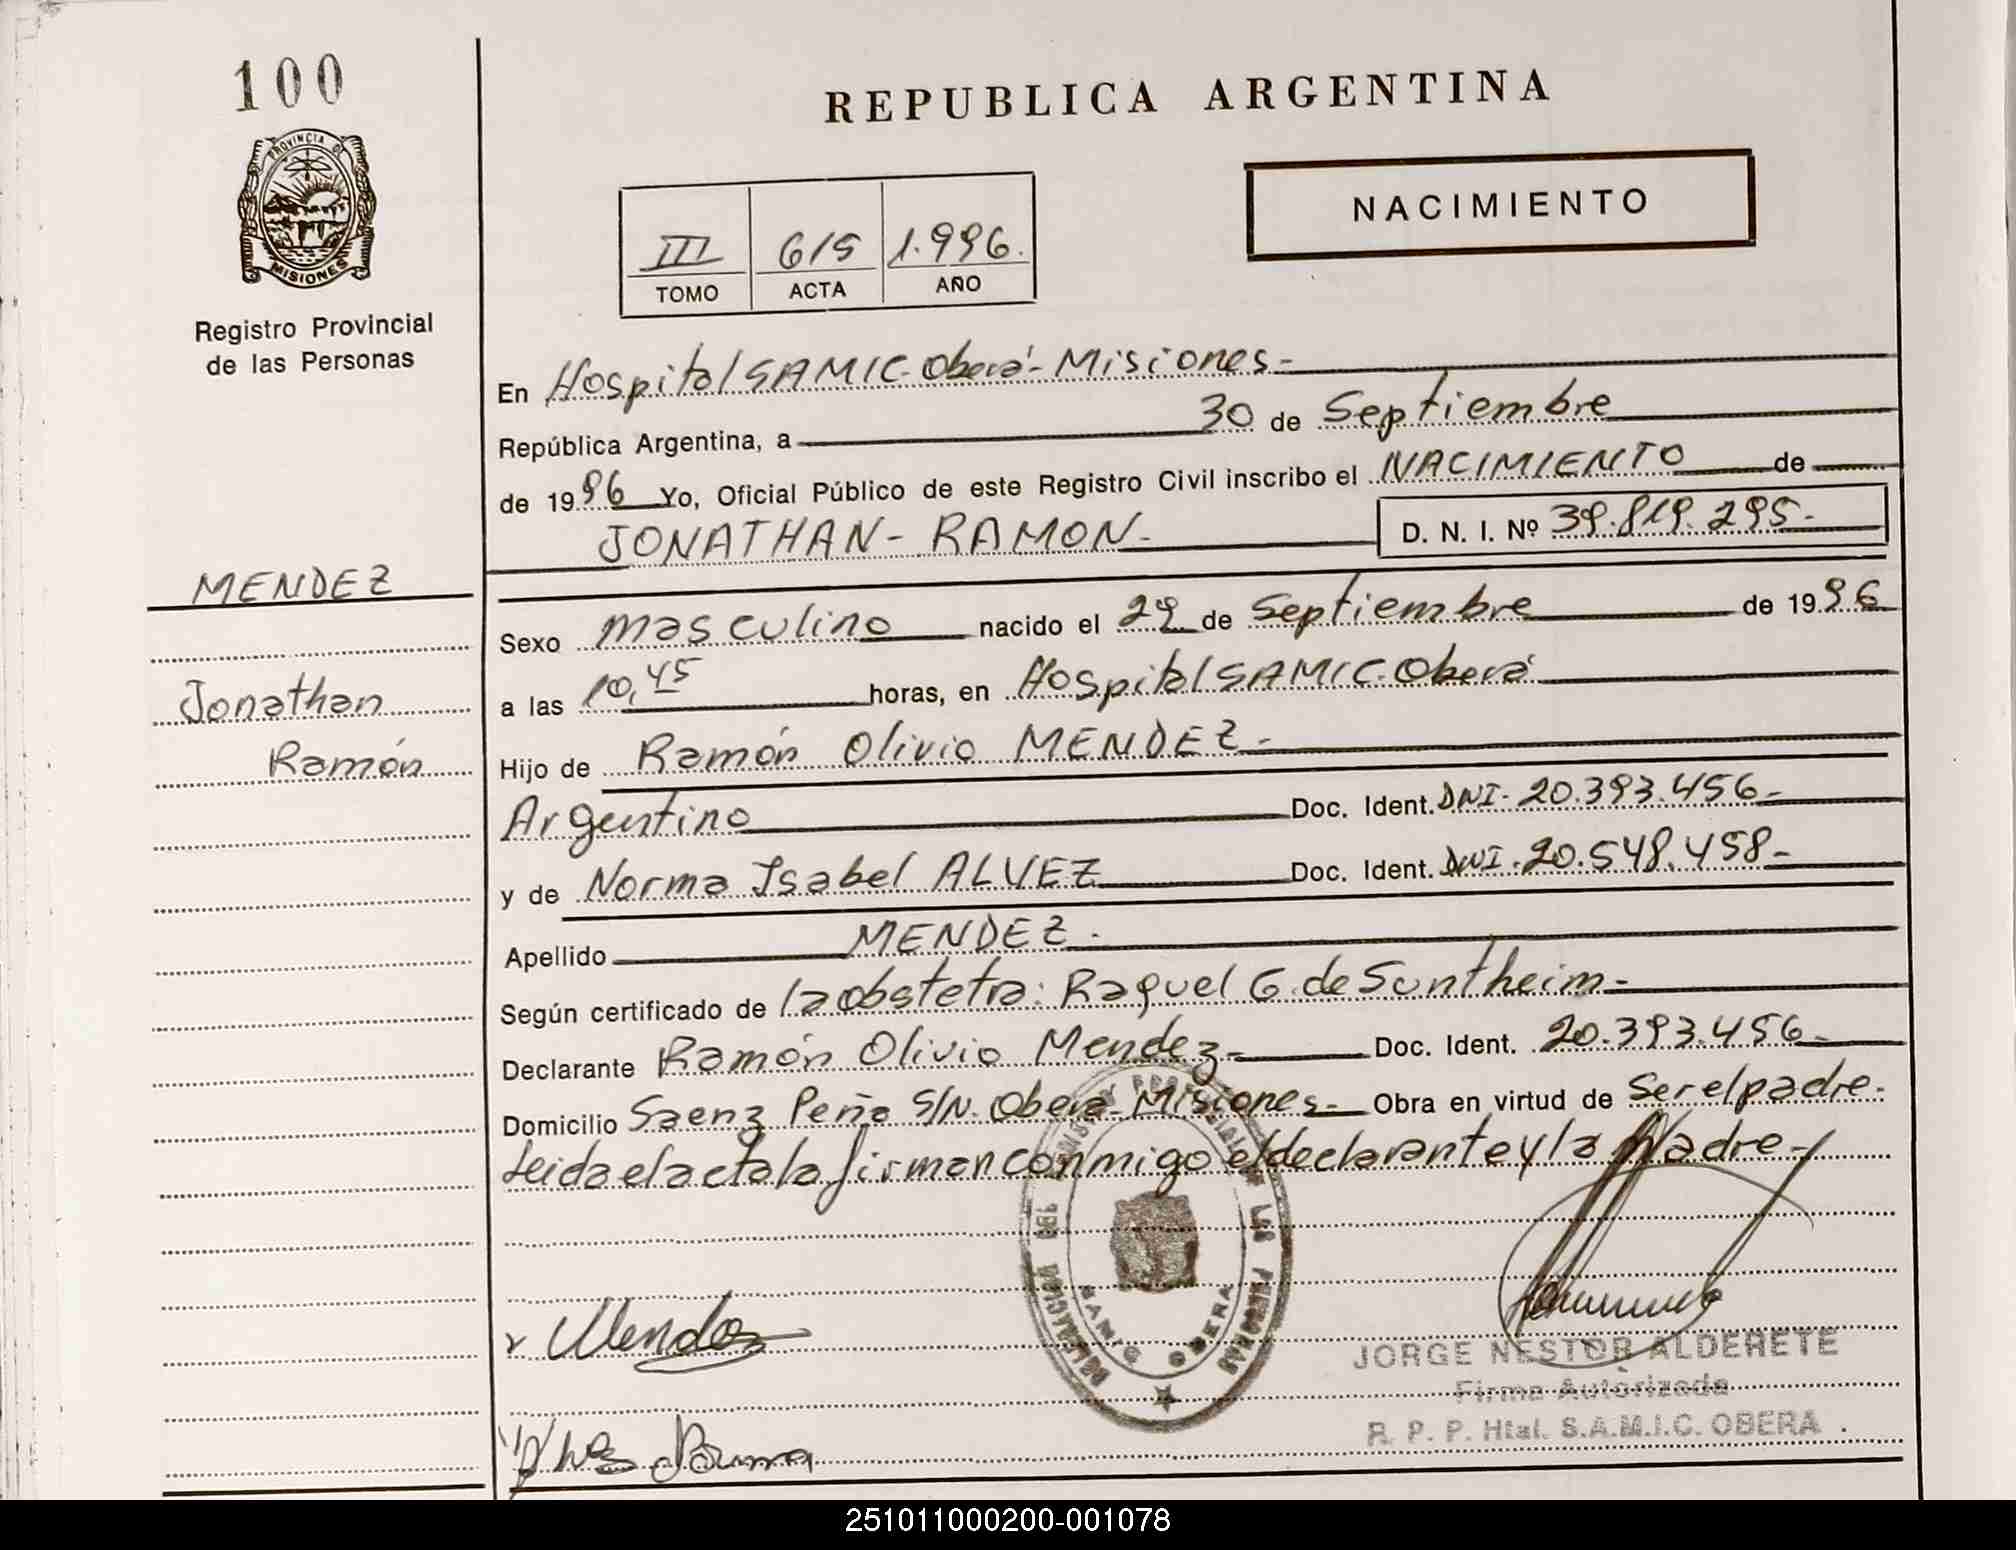 100
REPUBLICA ARGENTINA
PROVINCIA DE
MISIONES
NACIMIENTO
III 615 1.996.
TOMO ACTA AÑO
Registro Provincial
de las Personas
En Hospital SAMIC-Oberá-Misiones-
República Argentina, a 30 de Septiembre
de 1996 Yo, Oficial Público de este Registro Civil inscribo el NACIMIENTO de
JONATHAN-RAMON.- D. N. I. Nº 39.819.295-
MENDEZ
Sexo masculino nacido el 29 de Septiembre de 1996
Jonathan
a las 10,45 horas, en Hospital SAMIC.Oberá
Ramón
Hijo de Ramón Olivio MENDEZ-
Argentino Doc. Ident. DNI-20.393.456-
y de Norma Isabel ALVEZ Doc. Ident. DNI.20.548.458-
Apellido MENDEZ.
Según certificado de la obstetra: Raquel G. de Suntheim-
Declarante Ramón Olivio Mendez- Doc. Ident. 20.393.456-
Domicilio Saenz Peña S/N. Oberá-Misiones- Obra en virtud de ser el padre.
Leida el acta la firman conmigo el declarante y la Madre-
DELEGACION DEL
LAS PERSONAS
OBERA
Mendez
JORGE NESTOR ALDERETE
Firma Autorizada
R. P. P. Htal. S.A.M.I.C. OBERA
251011000200-001078